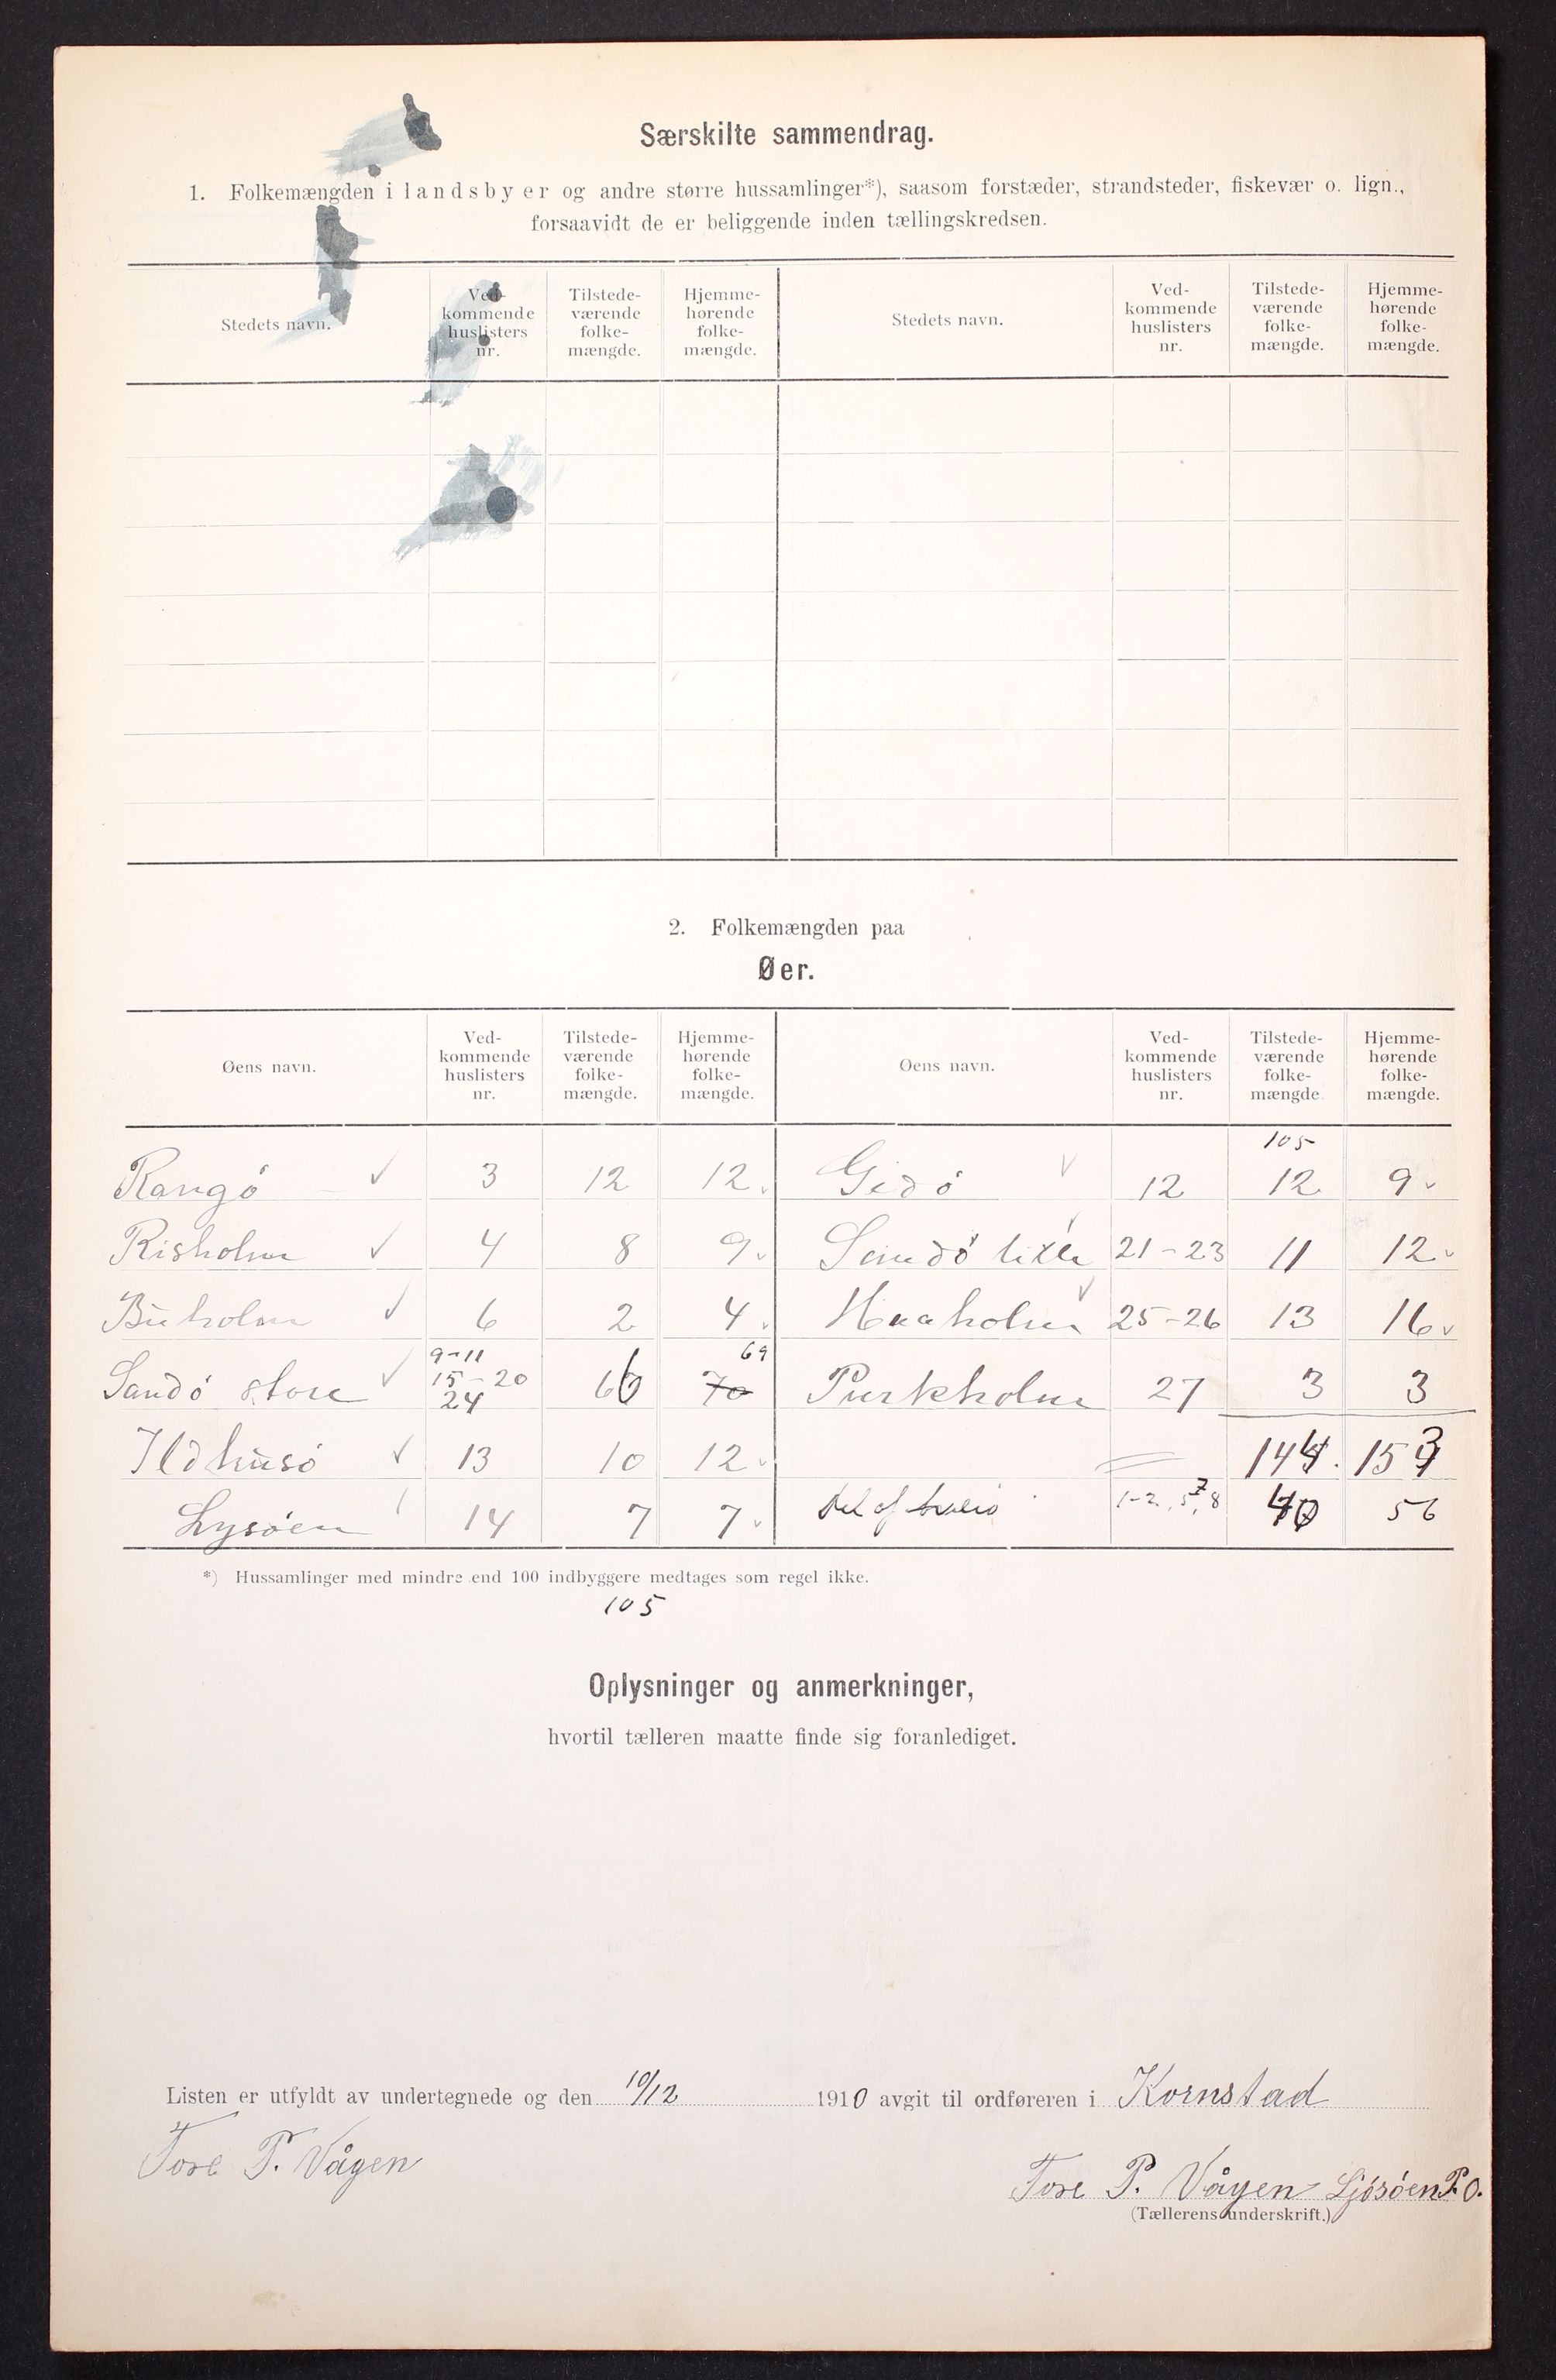 Særskilte sammendrag.
1. Folkemængden i landsbyer og andre større hussamlinger*), saasom forstæder, strandsteder, fiskevær o. lign.,
forsaavidt de er beliggende inden tællingskredsen.
Stedets navn. Ved-kommende huslisters nr. Tilstede-værende folke-mængde. Hjemme-hørende folke-mængde. Stedets navn. Ved-kommende huslisters nr. Tilstede-værende folke-mængde. Hjemme-hørende folke-mængde.
2. Folkemængden paa
Øer.
Øens navn. Ved-kommende huslisters nr. Tilstede-værende folke-mængde. Hjemme-hørende folke-mængde. Øens navn. Ved-kommende huslisters nr. Tilstede-værende folke-mængde. Hjemme-hørende folke-mængde.
105
Rangö 3 12 12 Gedö 12 12 9
Risholm 4 8 9 Sandö litle 21-23 11 12
Buholm 6 2 4 Haaholm 25-26 13 16
9-11 69
Sandö store 15-20 66 70 Purkholm 27 3 3
24
Ildhusö 13 10 12 144. 153
Lysöen 14 7 7 Del af 1-2, 5, 7, 8 56
*) Hussamlinger med mindre end 100 indbyggere medtages som regel ikke.
105
Oplysninger og anmerkninger,
hvortil tælleren maatte finde sig foranlediget.
Listen er utfyldt av undertegnede og den 10/12 1910 avgit til ordføreren i Kornstad
Tore P. Vågen
Tore P. Vågen Ljösöen P.O.
(Tællerens underskrift.)